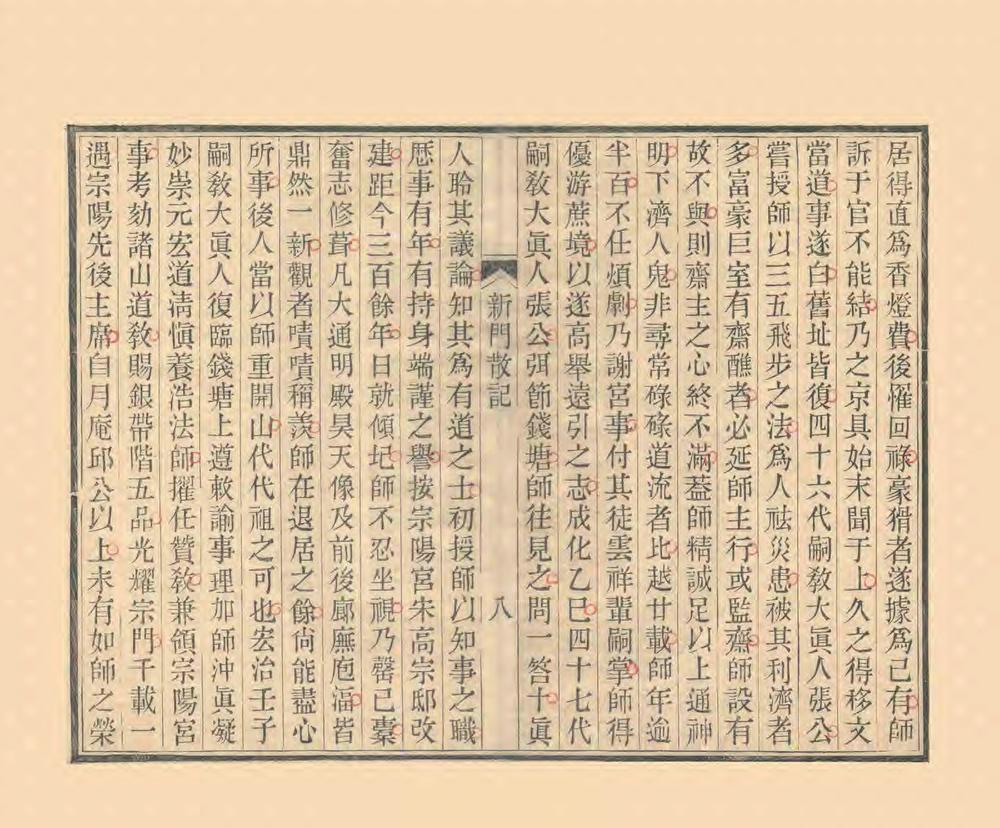 居得直爲香燈費後罹回祿豪猾者遂據爲己有師
訴于官不能結乃之京具始末聞于上久之得移文
當道事遂白舊址皆復四十六代嗣敎大眞人張公
嘗授師以三五飛步之法爲人祛災患被其利濟者
多富豪巨室有齋醮者必延師主行或監齋師設有
故不與則齋主之心終不滿葢師精誠足以上通神
明下濟人鬼非尋常碌碌道流者比越廿載師年逾
半百不任煩劇乃謝宮事付其徒雲祥輩嗣掌師得
優游蔗境以遂高舉遠引之志成化乙巳四十七代
嗣敎大眞人張公弭節錢塘師往見之問一答十眞
新門散記 八
人聆其議論知其爲有道之士初授師以知事之職
厯事有年有持身端謹之譽按宗陽宮宋高宗邸改
建距今三百餘年日就傾圮師不忍坐視乃罄已橐
奮志修葺凡大通明殿昊天像及前後廊廡庖湢皆
鼎然一新觀者嘖嘖稱羨師在退居之餘尙能盡心
所事後人當以師重開山代代祖之可也宏治壬子
嗣敎大眞人復臨錢塘上遵敕諭事理加師沖眞凝
妙崇元宏道淸愼養浩法師擢任贊敎兼領宗陽宮
事考劾諸山道敎賜銀帶階五品光耀宗門千載一
遇宗陽先後主席自月庵邱公以上未有如師之榮